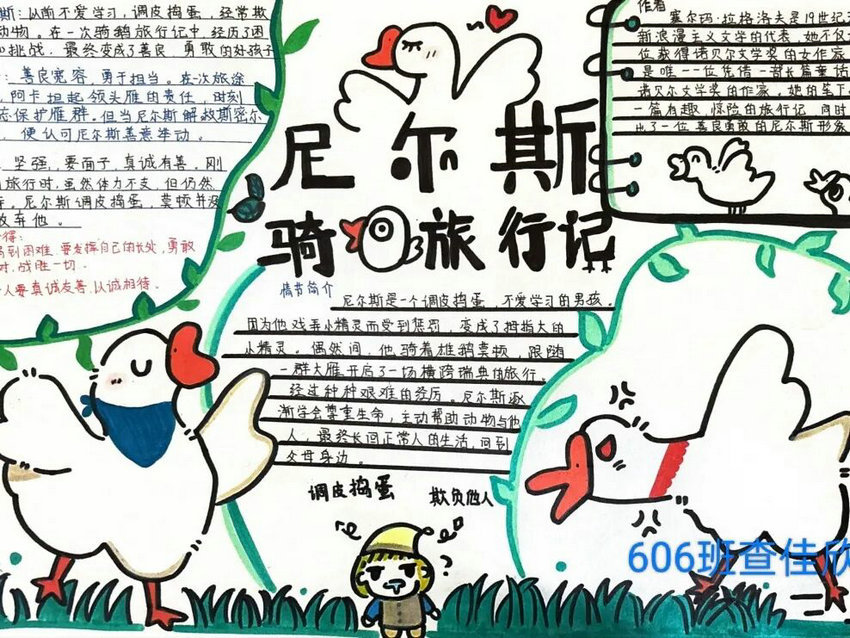 斯：从前不爱学习，调皮捣蛋，经常欺
动物。在一次骑鹅旅行记中，经历了困
挑战，最终变成了善良、勇敢的好孩子
：善良宽容，勇于担当。在一次旅途
，阿卡担起领头雁的责任，时刻
志保护雁群。但当尼尔斯解救斯密尔
，便认可尼尔斯善意举动。
坚强，要面子，真诚有善，刚
旅行时，虽然体力不支，但仍然
。尼尔斯调皮捣蛋，莫顿并没
放弃他。
得：
遇到困难，要发挥自己的长处，勇敢
对，战胜一切。
人要真诚友善，以诚相待。
尼尔斯
骑鹅旅行记
作者
塞尔玛·拉格洛夫是19世纪
新浪漫主义文学的代表，她不仅
位获得诺贝尔文学奖的女作家
是唯一一位凭借一部长篇童话
诺贝尔文学奖的作家，她的笔下
一篇有趣、惊险的旅行记，同时
了一位善良勇敢的尼尔斯形象
情节简介
尼尔斯是一个调皮捣蛋，不爱学习的男孩。
因为他戏弄小精灵而受到惩罚，变成了拇指大的
小精灵。偶然间，他骑着雄鹅莫顿，跟随
一群大雁开启了一场横跨瑞典的旅行。
经过种种艰难的经历。尼尔斯逐
渐学会尊重生命，主动帮助动物与他
人，最终长回正常人的生活，回到
父母身边。
调皮捣蛋 欺负他人
606班查佳欣